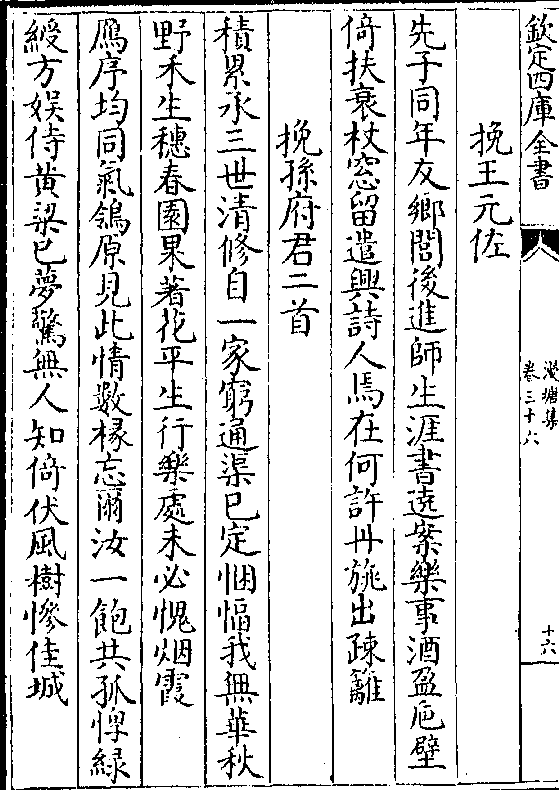 欽定四庫全書
漫塘集
卷三十六
十六
挽王元佐
先子同年友鄉閭後進師生涯書遶案樂事酒盈巵壁
倚扶衰杖窓留遣興詩人焉在何許丹旐出疎籬
挽孫府君二首
積累承三世清修自一家窮通渠已定悃愊我無華秋
野禾生穗春園果著花平生行樂處未必愧烟霞
鴈序均同氣鴒原見此情數椽忘爾汝一飽共孤惸緑
綬方娱侍黄粱已夢驚無人知倚伏風樹慘佳城